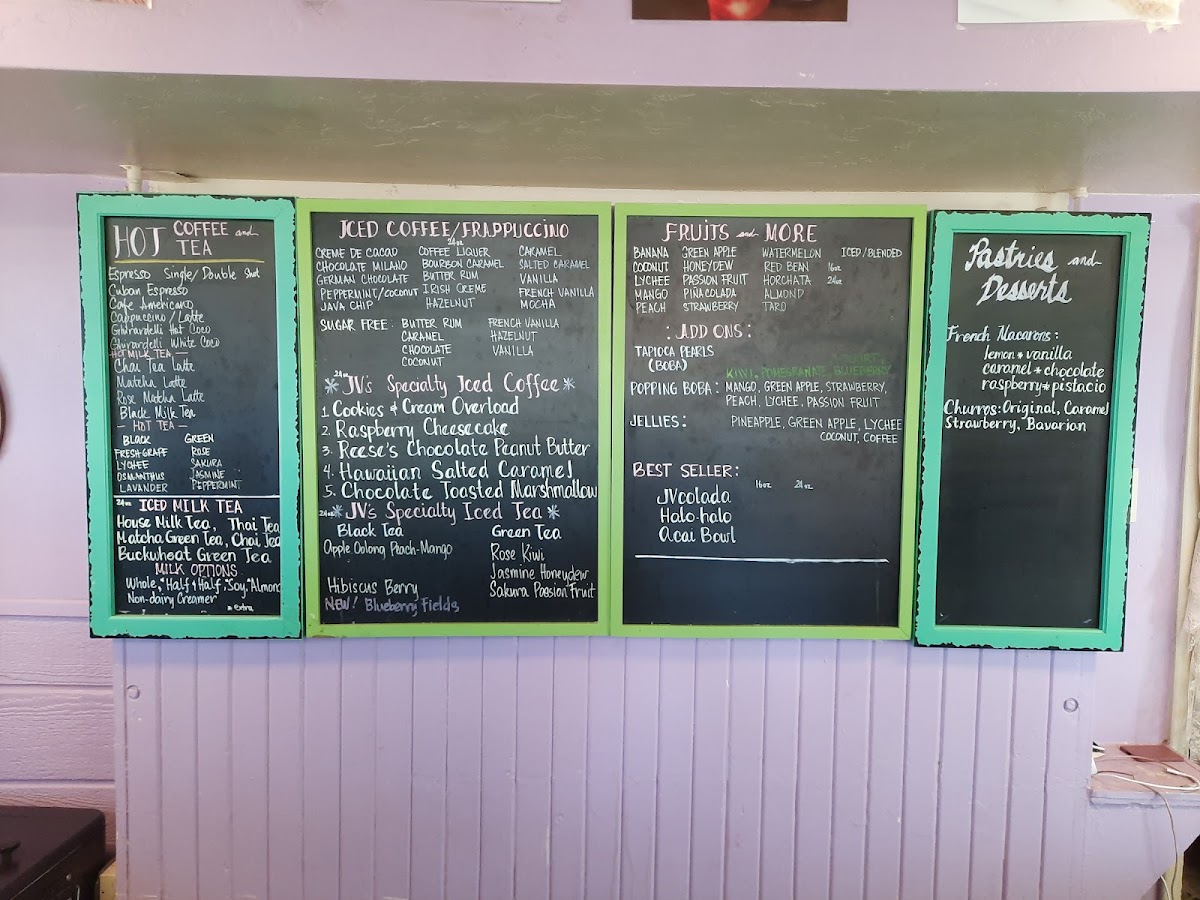 HOT COFFEE and TEA
Espresso Single/Double Shot
Cuban Espresso
Cafe Americano
Cappuccino / Latte
Ghirardelli Hot Coco
Ghirardelli White Coco
HOT MILK TEA —
Chai Tea Latte
Matcha Latte
Rose Matcha Latte
Black Milk Tea
— HOT TEA —
BLACK GREEN
FRESH-GRAPE ROSE
LYCHEE SAKURA
OSMANTHUS JASMINE
LAVANDER PEPPERMINT
24oz ICED MILK TEA
House Milk Tea, Thai Tea
Matcha Green Tea, Chai Tea
Buckwheat Green Tea
MILK OPTIONS
Whole, *Half & Half, *Soy, *Almond
Non-dairy Creamer
* extra
ICED COFFEE/FRAPPUCCINO
24oz
CREME DE CACAO COFFEE LIQUER CARAMEL
CHOCOLATE MILANO BOURBON CARAMEL SALTED CARAMEL
GERMAN CHOCOLATE BUTTER RUM VANILLA
PEPPERMINT/COCONUT IRISH CREME FRENCH VANILLA
JAVA CHIP HAZELNUT MOCHA
SUGAR FREE: BUTTER RUM FRENCH VANILLA
CARAMEL HAZELNUT
CHOCOLATE VANILLA
COCONUT
24oz
JV's Specialty Iced Coffee
1. Cookies & Cream Overload
2. Raspberry Cheesecake
3. Reese's Chocolate Peanut Butter
4. Hawaiian Salted Caramel
5. Chocolate Toasted Marshmallow
24oz JV's Specialty Iced Tea
Black Tea Green Tea
Apple Oolong Peach-Mango Rose Kiwi
Jasmine Honeydew
Hibiscus Berry Sakura Passion Fruit
NEW! Blueberry Fields
FRUITS and MORE
BANANA GREEN APPLE WATERMELON ICED/BLENDED
COCONUT HONEYDEW RED BEAN 16oz
LYCHEE PASSION FRUIT HORCHATA 24oz
MANGO PIÑA COLADA ALMOND
PEACH STRAWBERRY TARO
: ADD ONS :
TAPIOCA PEARLS
(BOBA)
KIWI, POMEGRANATE, BLUEBERRY
POPPING BOBA: MANGO, GREEN APPLE, STRAWBERRY,
PEACH, LYCHEE, PASSION FRUIT
JELLIES: PINEAPPLE, GREEN APPLE, LYCHEE
COCONUT, COFFEE
BEST SELLER:
16oz 24oz
JVcolada
Halo-halo
Acai Bowl
Pastries and
Desserts
French Macarons:
lemon * vanilla
caramel * chocolate
raspberry * pistacio
Churros: Original, Caramel
Strawberry, Bavarian